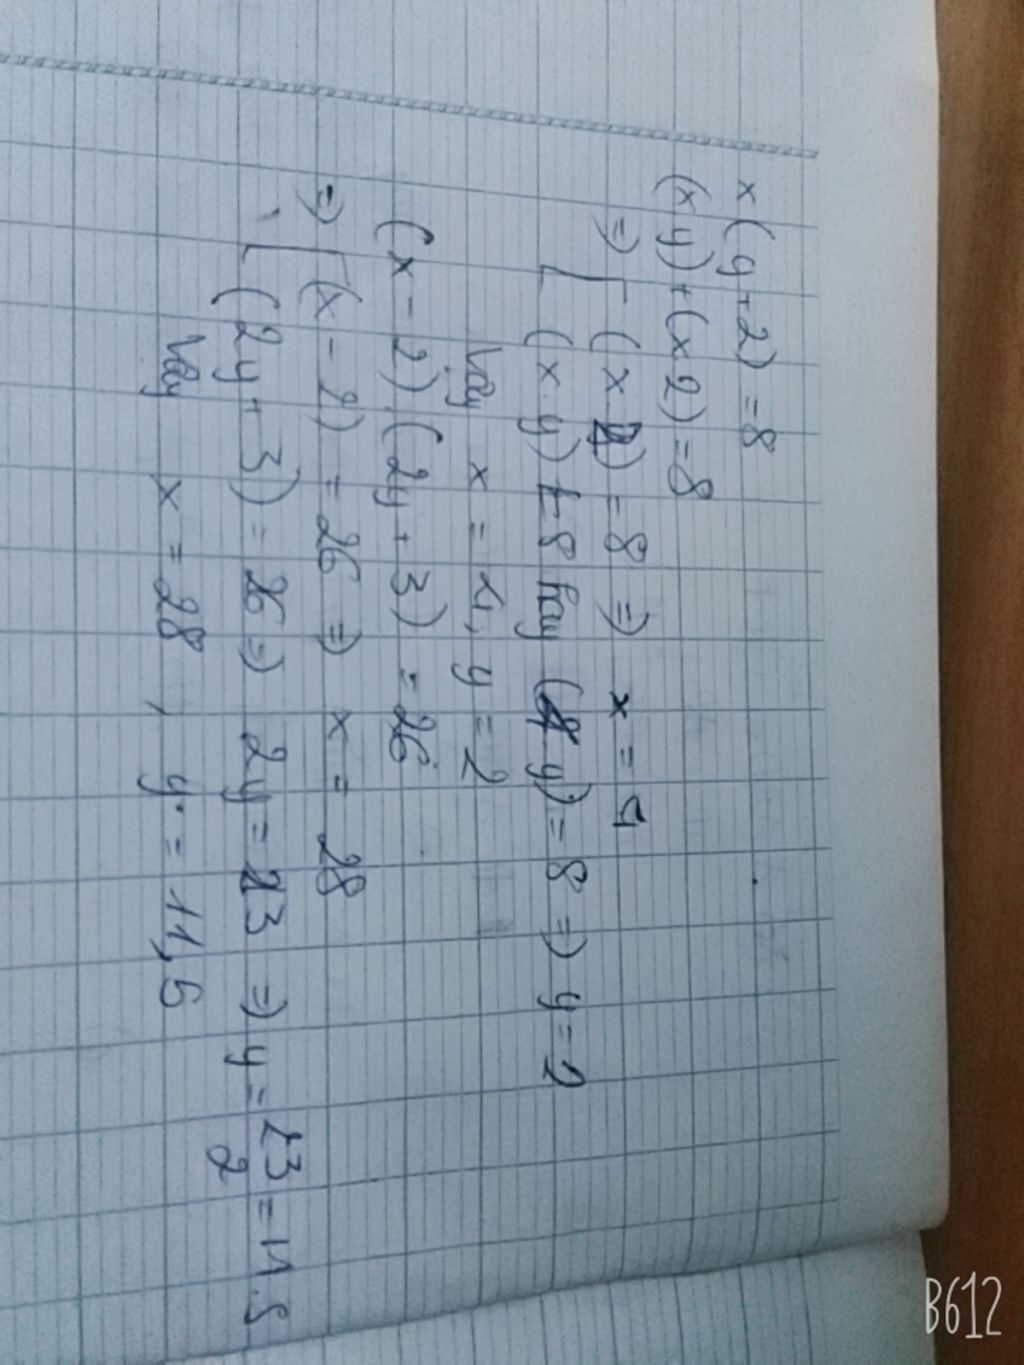 x(y+2) = 8
(x.y)+(x.2) = 8
=> [ (x.2) = 8 => x = 4
(x.y) = 8 hay (4.y) = 8 => y = 2
Vậy x = 4, y = 2
(x - 2).(2y + 3) = 26
=> [ (x - 2) = 26 => x = 28
(2y + 3) = 26 => 2y = 23 => y = 23/2 = 11.5
Vậy x = 28, y = 11,5
B612